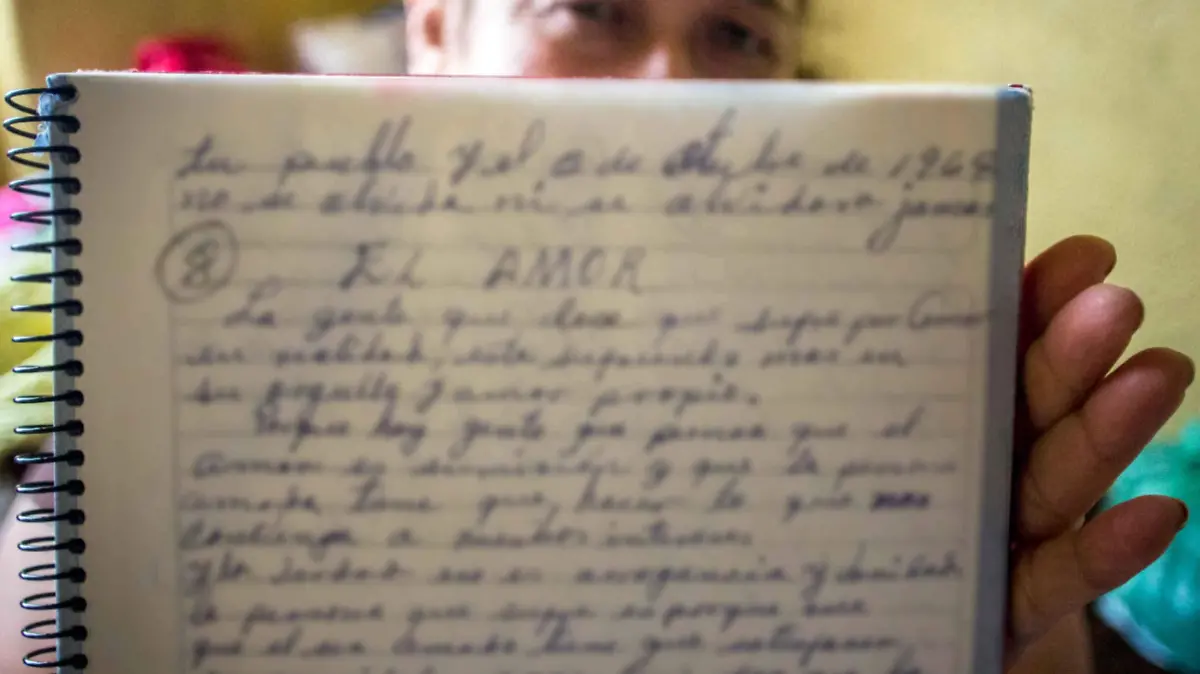 tu pueblo y el 2 de Octubre de 1968
no se olvida ni se olvidara jamas
8 EL AMOR
La gente que dice que sufre por amor
en realidad, esta sufriendo mas en
su orgullo y amor propio.
Porque hay gente que piensa que el
amor es sumisión y que la persona
amada tiene que hacer lo que mas
convenga a nuestros intereses.
Y la verdad eso es arrogancia y vanidad
la persona que sufre es porque cree
que el ser amado tiene que